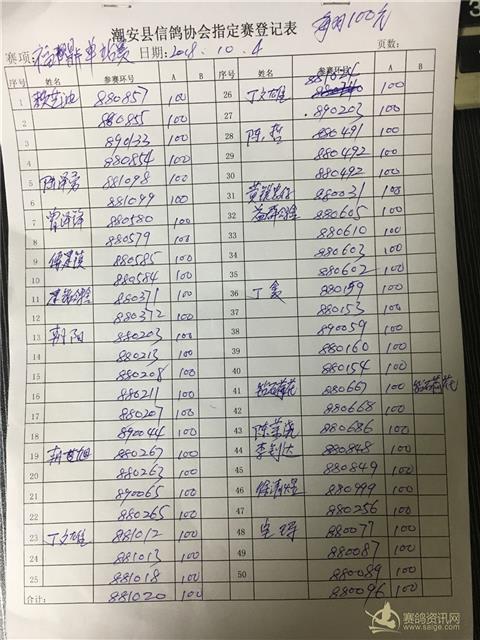 潮安县信鸽协会指定赛登记表 每羽100元
赛项: 单站赛 日期: 2018.10.4 页数:
序号 姓名 参赛环号 A B 序号 姓名 参赛环号 A B
1 880857 100 26 丁文雄 100
2 880855 100 27 890203 100
3 890133 100 28 陈哲 880491 100
4 880854 100 29 880492 100
5 881098 100 30 880492 100
6 881099 100 31 880031 100
7 曾泽锋 880580 100 32 880605 100
8 880579 100 33 880610 100
9 880585 100 34 880603 100
10 880584 100 35 880602 100
11 880371 100 36 880159 100
12 880372 100 37 880153 100
13 朝阳 880203 100 38 890059 100
14 880213 100 39 880160 100
15 880208 100 40 880154 100
16 880211 100 41 880667 100
17 880207 100 42 880668 100
18 890044 100 43 880686 100
19 880267 100 44 李钊达 880848 100
20 880263 100 45 880849 100
21 890065 100 46 880999 100
22 880265 100 47 880256 100
23 丁文雄 881012 100 48 880077 100
24 881013 100 49 880087 100
25 881018 100 50 880089 100
合计: 881020 100 880096 100
赛鸽资讯网
www.saige.com